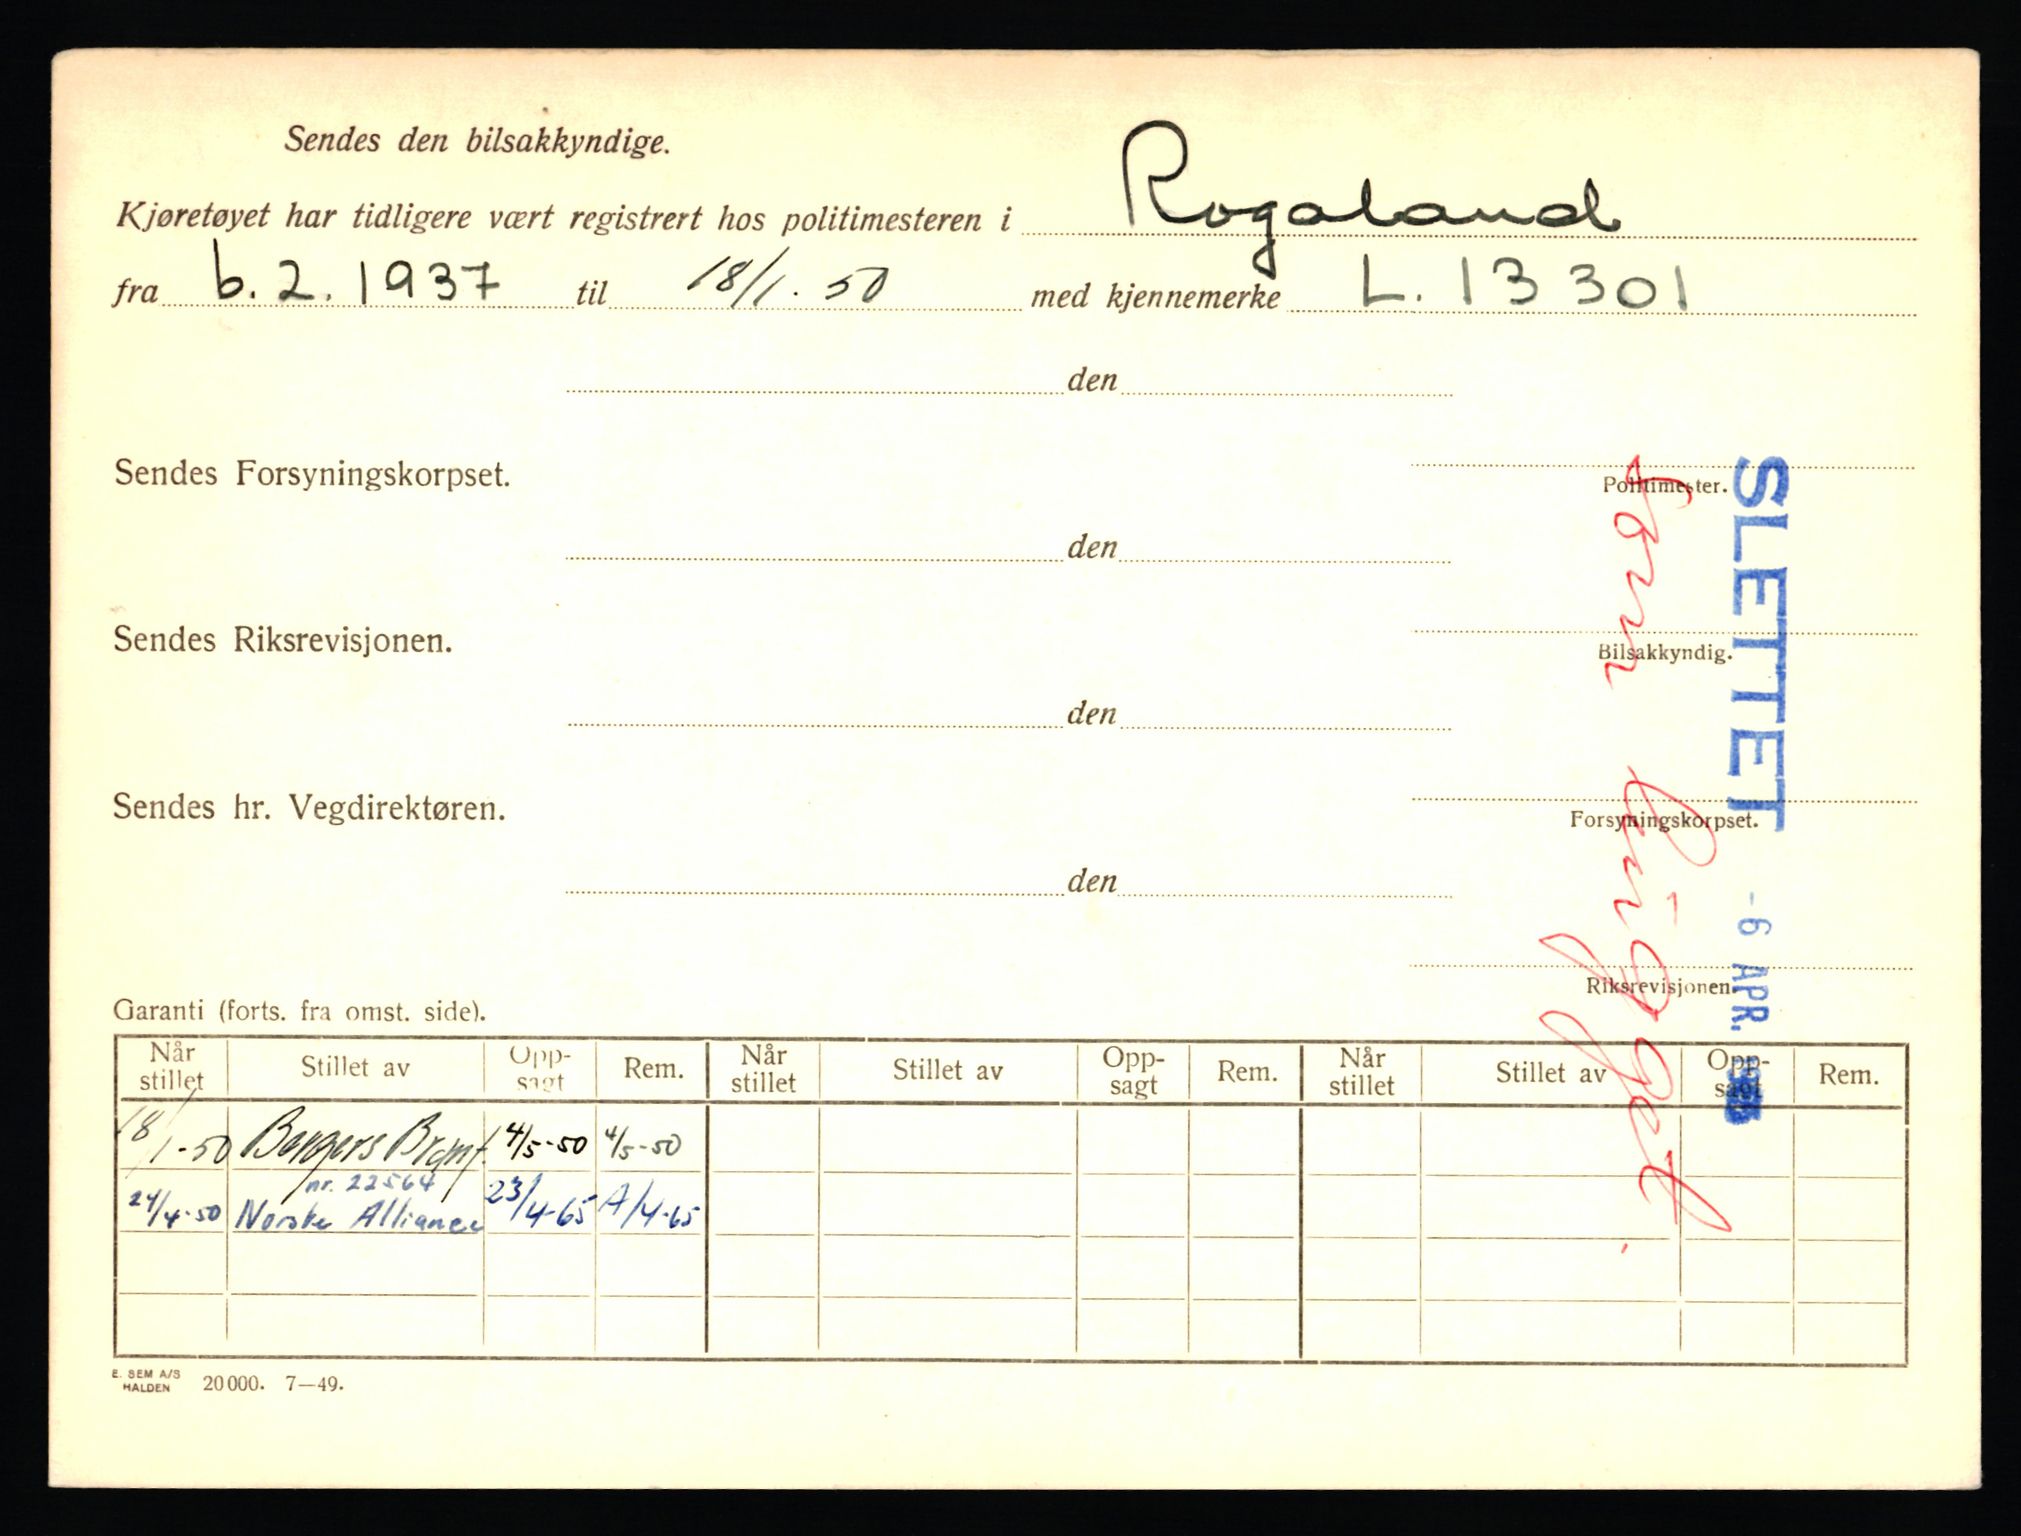 Sendes den bilsakkyndige.
Kjøretøyet har tidligere vært registrert hos politimesteren i Rogaland
fra 6.2.1937 til 18/1.50 med kjennemerke L.13301
den
Sendes Forsyningskorpset.
Politimester.
den
Sendes Riksrevisjonen.
Bilsakkyndig.
den
Sendes hr. Vegdirektøren.
Forsyningskorpset.
den
Riksrevisjonen.
SLETTET
- 6 APR.
Som hugget.
Garanti (forts. fra omst. side).
Når stillet Stillet av Opp-sagt Rem. Når stillet Stillet av Opp-sagt Rem. Når stillet Stillet av Opp-sagt Rem.
18/1-50 Bergers Brannf. 4/5-50 4/5-50
nr. 22564
24/4-50 Norske Alliance 23/4-65 /4-65
E. SEM A/S
HALDEN 20000. 7—49.